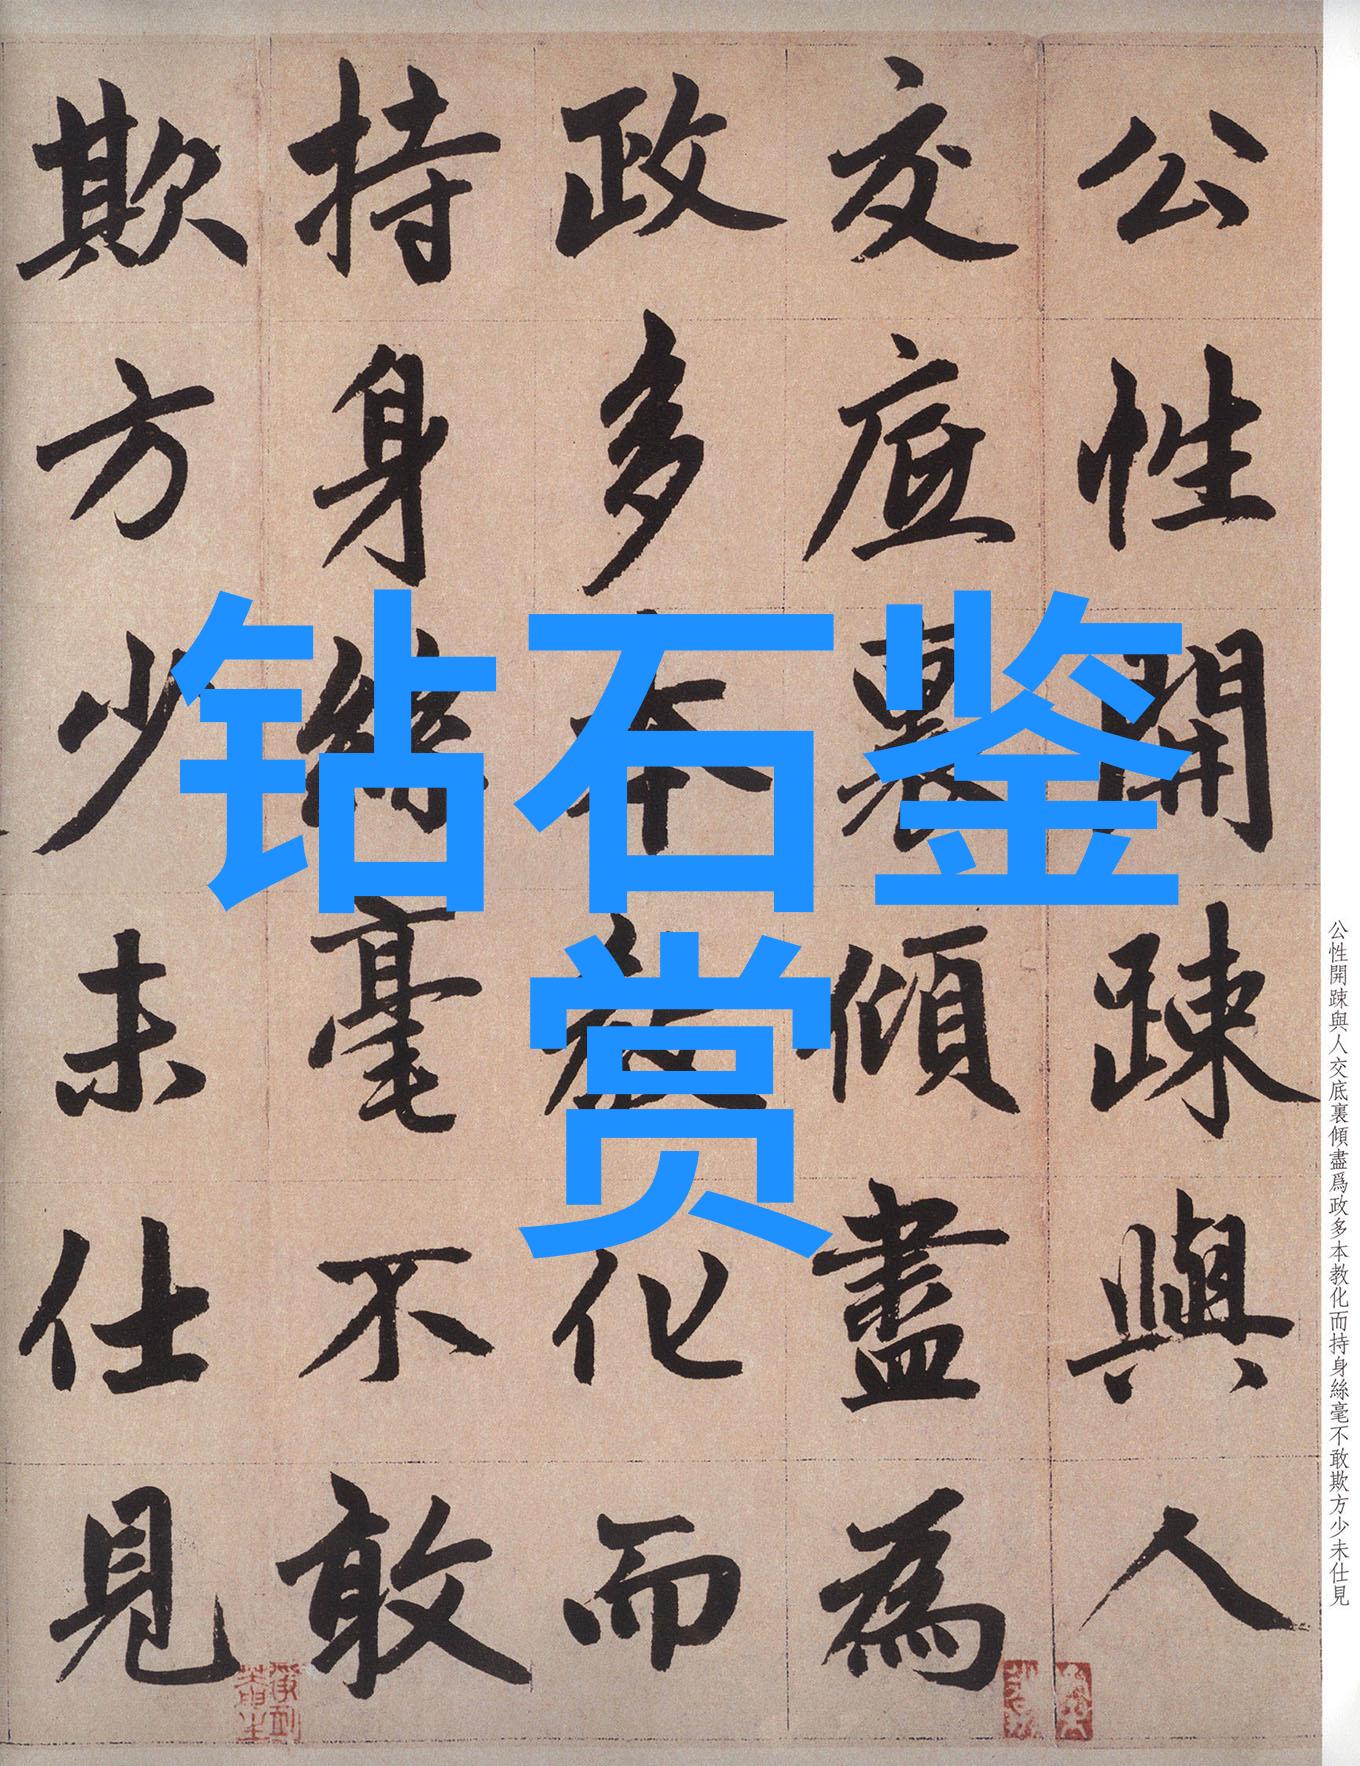 公性開踈與人
交底裏傾盡為
政多本教化而
持身絲毫不敢
欺方少未仕見
钻石鉴
赏
公性開踈與人交底裏傾盡爲政多本教化而持身絲毫不敢欺方少未仕見